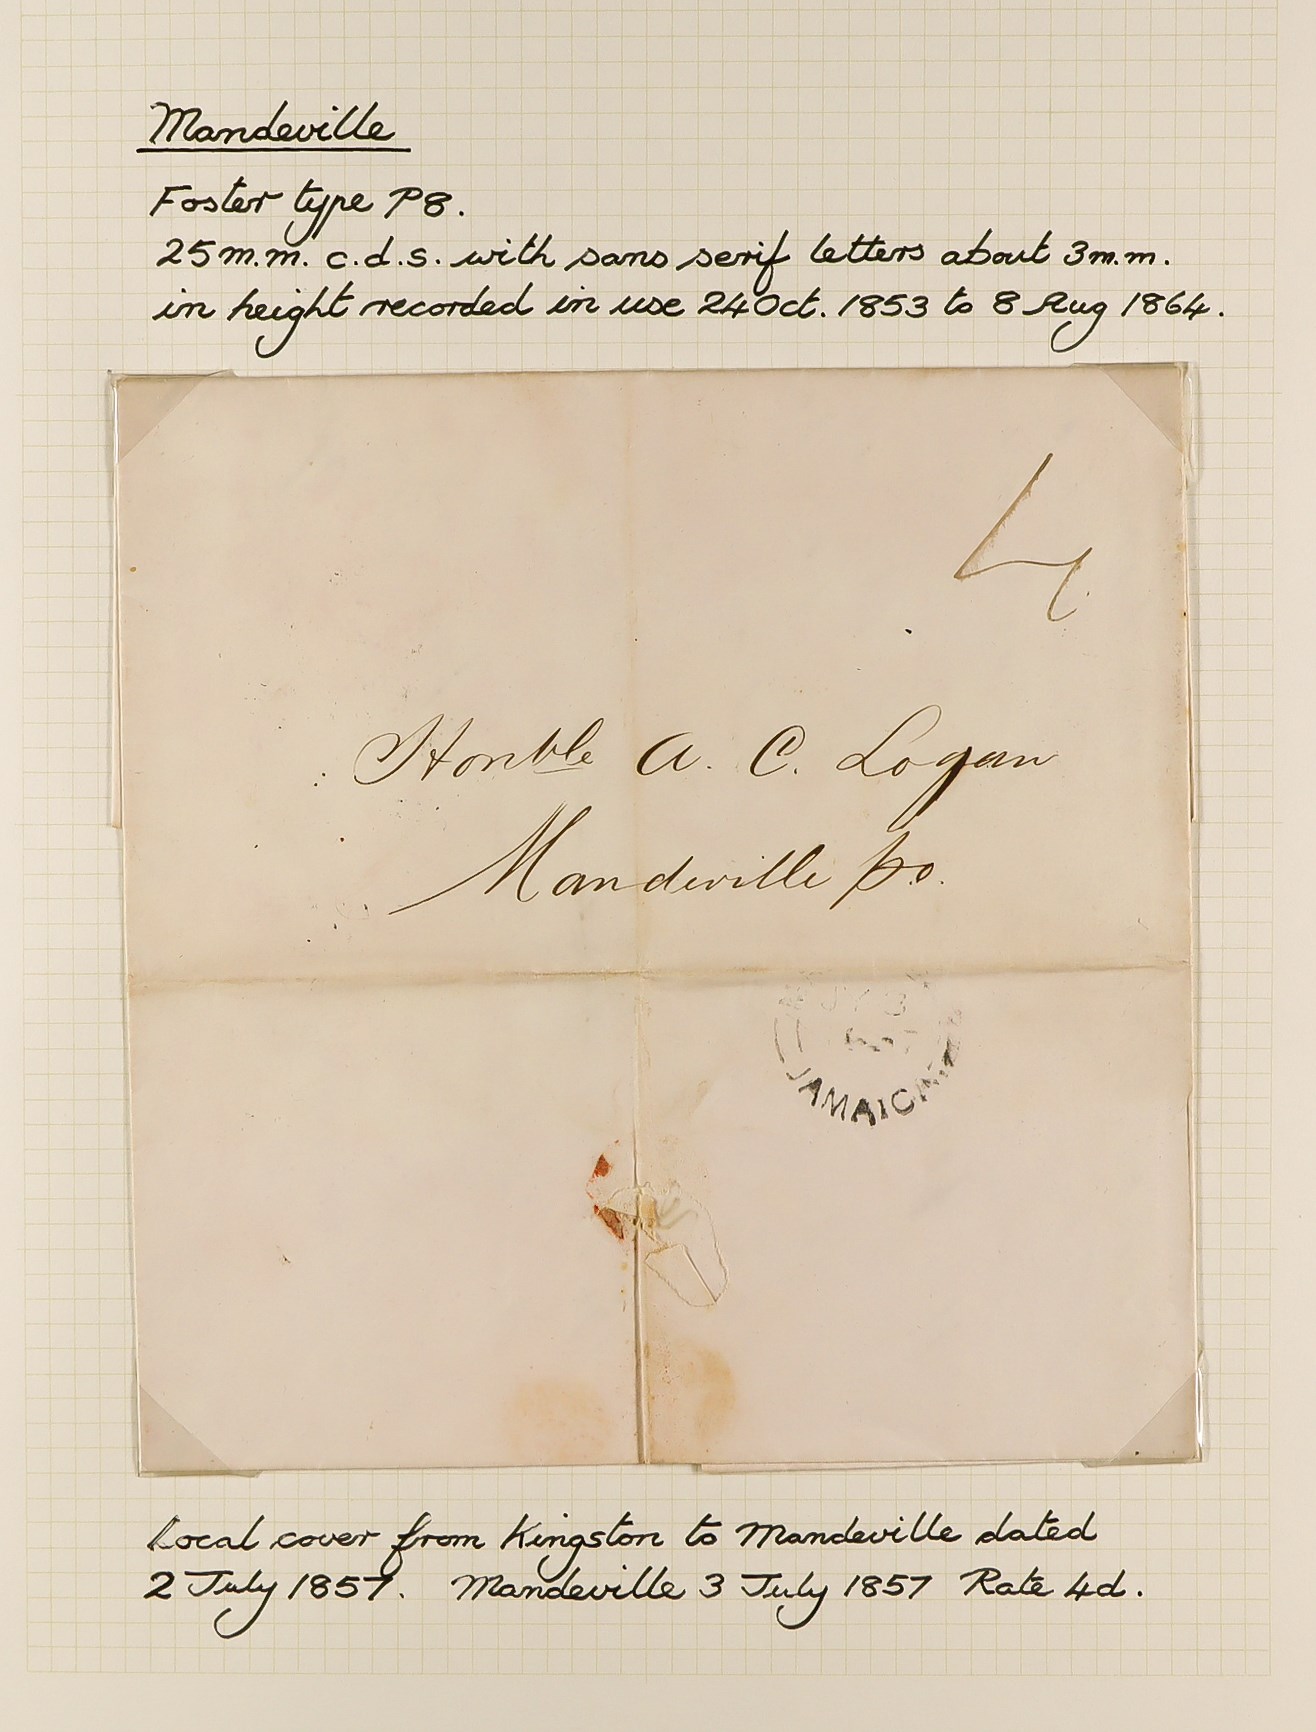 Mandeville
Foster type P8.
25 m.m. c.d.s. with sans serif letters about 3 m.m.
in height recorded in use 24 Oct. 1853 to 8 Aug 1864.
4
Honble A. C. Logan
Mandeville p.o.
JY 3
JAMAICA
Local cover from Kingston to Mandeville dated
2 July 1857. Mandeville 3 July 1857 Rate 4d.